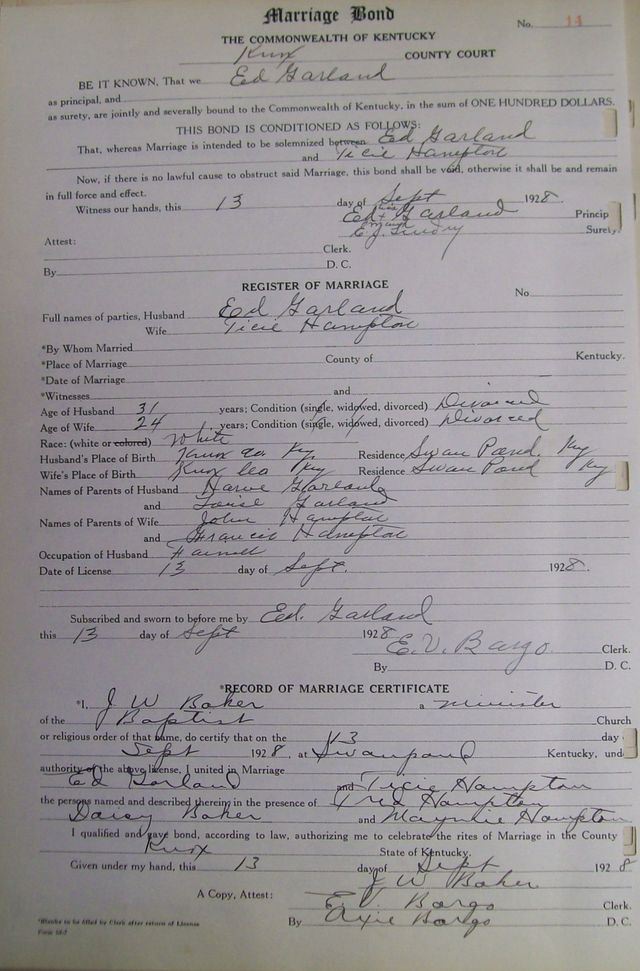 Marriage Bond
No. 14
THE COMMONWEALTH OF KENTUCKY
Knox COUNTY COURT
BE IT KNOWN, That we Ed Garland
as principal, and
as surety, are jointly and severally bound to the Commonwealth of Kentucky, in the sum of ONE HUNDRED DOLLARS.
THIS BOND IS CONDITIONED AS FOLLOWS:
That, whereas Marriage is intended to be solemnized between Ed Garland
and Ticie Hampton
Now, if there is no lawful cause to obstruct said Marriage, this bond shall be void, otherwise it shall be and remain
in full force and effect.
Witness our hands, this 13 day of Sept 1928.
Ed his x mark Garland Princip
E. J. Surety
Attest:
Clerk.
By D. C.
REGISTER OF MARRIAGE
No
Full names of parties, Husband Ed Garland
Wife Ticie Hampton
*By Whom Married
*Place of Marriage County of Kentucky.
*Date of Marriage
*Witnesses and
Age of Husband 31 years; Condition (single, widowed, divorced) Divorced
Age of Wife 24 years; Condition (single, widowed, divorced) Divorced
Race: (white or colored) White
Husband's Place of Birth Knox co Ky Residence Swan Pond. Ky
Wife's Place of Birth Knox Co Ky Residence Swan Pond Ky
Names of Parents of Husband Garland
and Garland
Names of Parents of Wife John Hampton
and Francis Hampton
Occupation of Husband
Date of License 13 day of Sept. 1928.
Subscribed and sworn to before me by Ed. Garland
this 13 day of Sept 1928
E. V. Bargo Clerk.
By D. C.
*RECORD OF MARRIAGE CERTIFICATE
*I, J W Baker a minister
of the Baptist Church
or religious order of that name, do certify that on the 13 day
Sept 1928, at Swanpond Kentucky, und
authority of the above license, I united in Marriage
Ed Garland and Ticie Hampton
the persons named and described therein, in the presence of Fred Hampton
Daisy Baker and Maymie Hampton
I qualified and gave bond, according to law, authorizing me to celebrate the rites of Marriage in the County
Knox State of Kentucky.
Given under my hand, this 13 day of Sept 1928
J W Baker
A Copy, Attest: E. V. Bargo Clerk.
By Arxie Bargo D. C.
*Blanks to be filled by Clerk after return of License